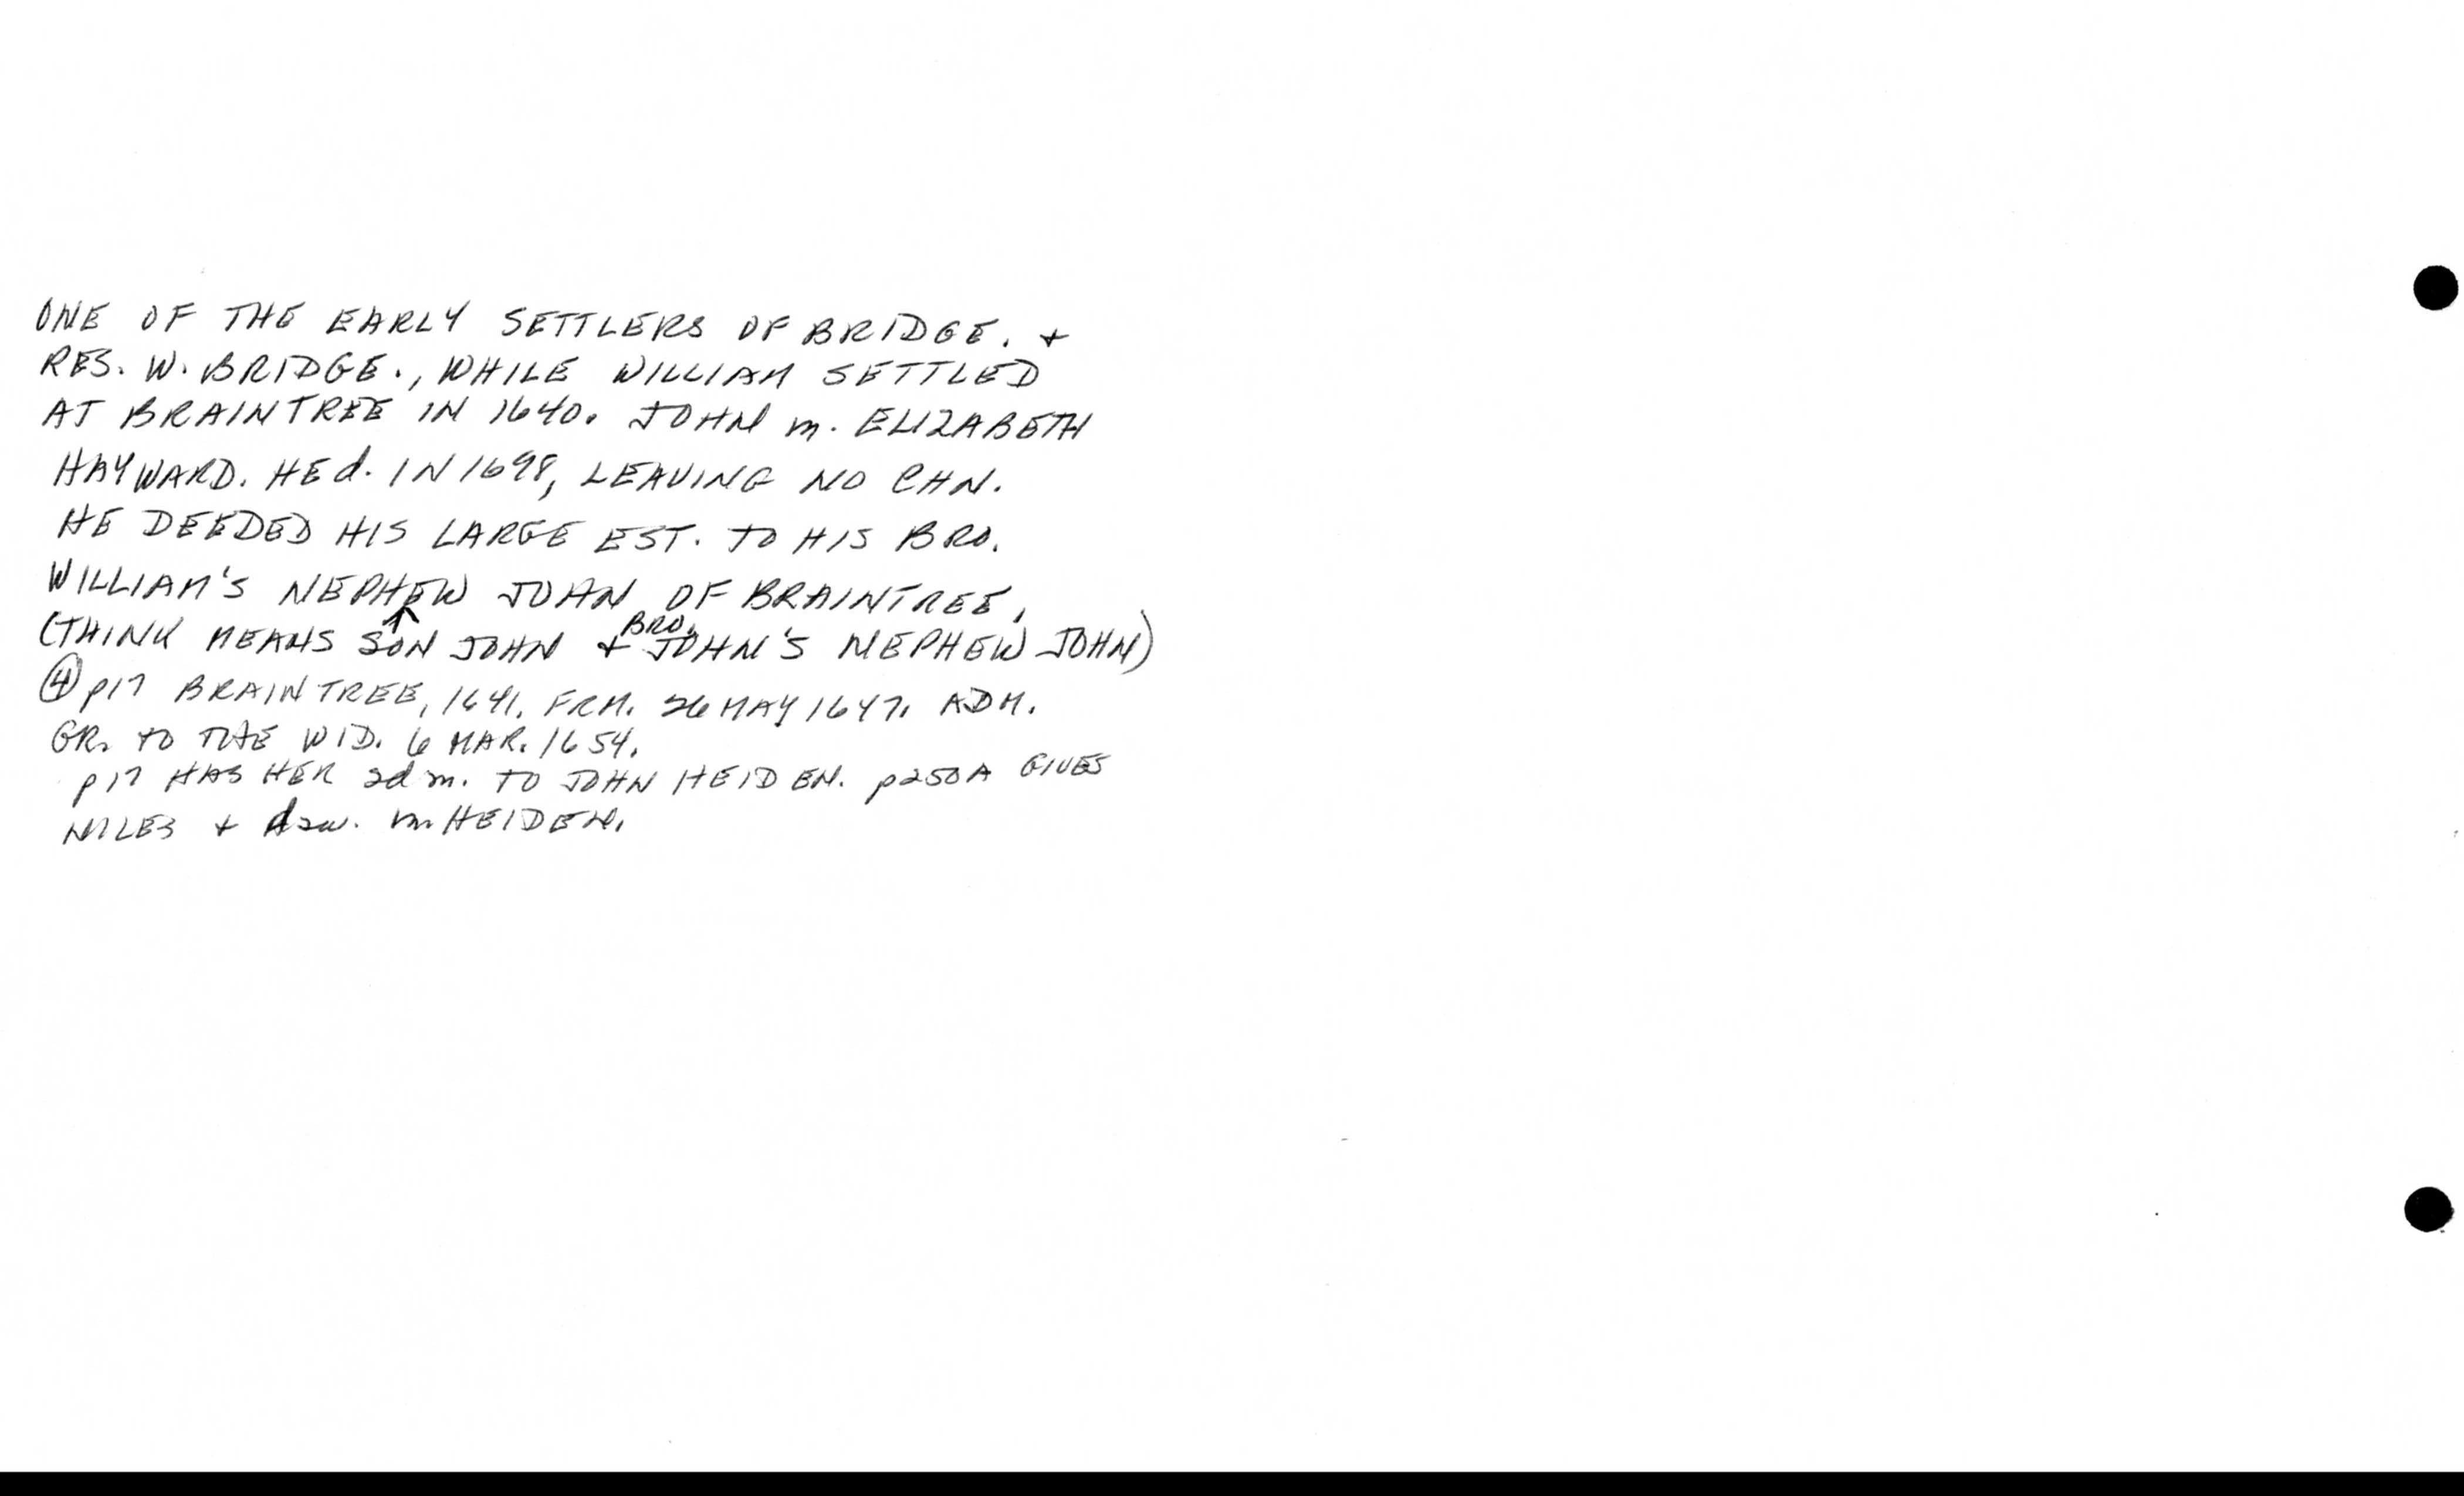 ONE OF THE EARLY SETTLERS OF BRIDGE. +
RES. W. BRIDGE., WHILE WILLIAM SETTLED
AT BRAINTREE IN 1640. JOHN m. ELIZABETH
HAYWARD. HE d. IN 1698, LEAVING NO CHN.
HE DEEDED HIS LARGE EST. TO HIS BRO.
WILLIAM'S NEPHEW JOHN OF BRAINTREE,
(THINK MEANS SON JOHN + BRO. JOHN'S NEPHEW JOHN)
④ p17 BRAINTREE, 1641. FRM. 26 MAY 1647. ADM.
GR. TO THE WID. 6 MAR. 1654.
p17 HAS HER 2d m. TO JOHN HEIDEN. p250A GIVES
NILES + m HEIDEN.